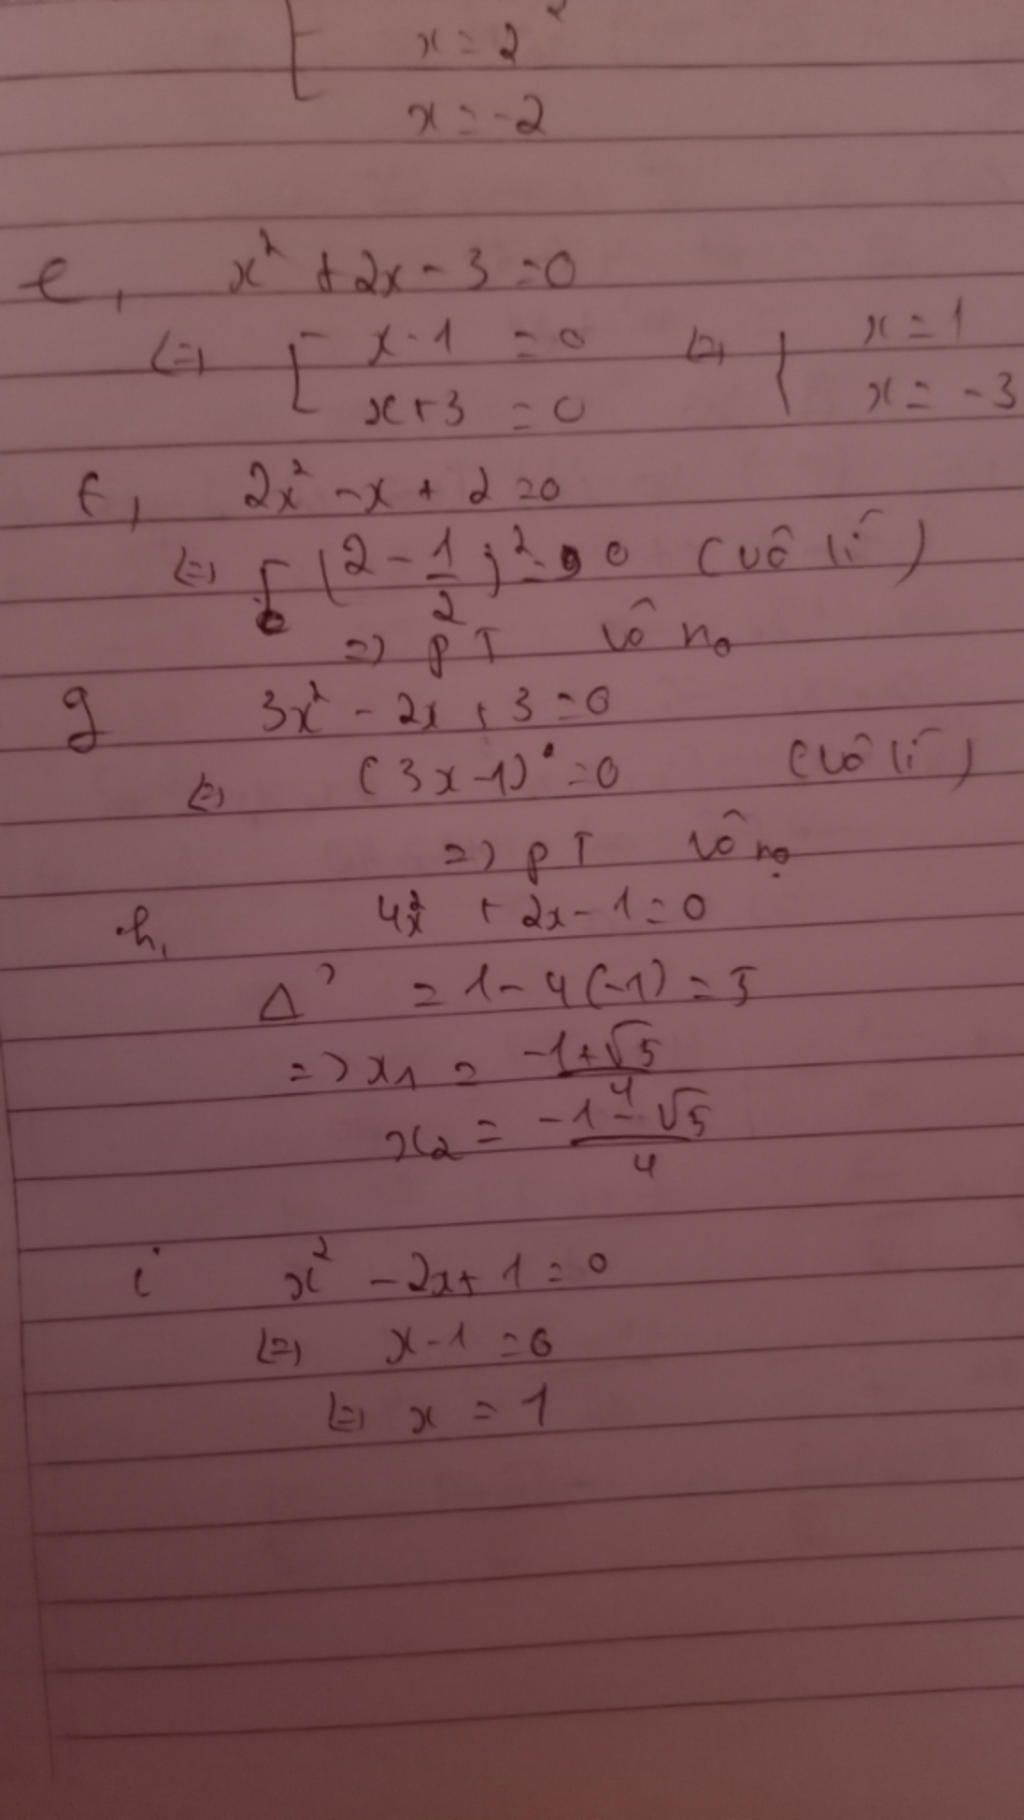 x = 2
x = -2
e, x² + 2x - 3 = 0
(=) [ x - 1 = 0 (=) { x = 1
x + 3 = 0 x = -3
f, 2x² - x + 2 = 0
(=) (2 - 1/2)² = 0 (vô lí)
=) PT vô no
g 3x² - 2x + 3 = 0
(=) (3x - 1) = 0 (vô lí)
=) PT vô no
h, 4x² + 2x - 1 = 0
Δ' = 1 - 4(-1) = 5
=> x₁ = (-1 + √5)/4
x₂ = (-1 - √5)/4
i x² - 2x + 1 = 0
(=) x - 1 = 0
(=) x = 1